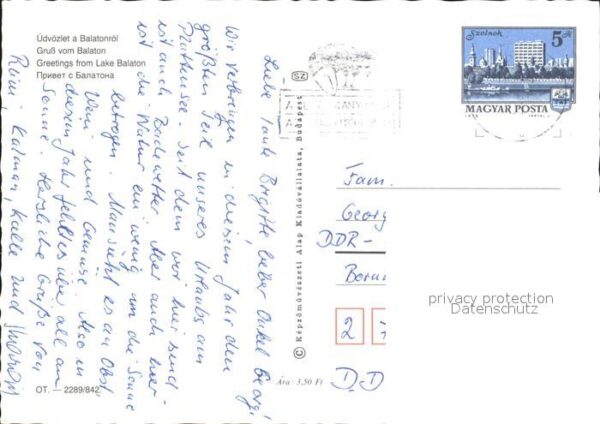 Üdvözlet a Balatonról
Gruß vom Balaton
Greetings from Lake Balaton
Привет с Балатона
Liebe Tante Brigitte, lieber Onkel Georg!
Wir verbringen in diesem Jahr den
größten Teil unseres Urlaubs am
Seit dem wir hier sind
ist auch Badewetter. Aber auch hier
ist die Natur ein wenig um die Sonne
betrogen. Man sieht es an Obst,
Wein und Gemüse. Also in
diesem Jahr fehlt es überall an
Sonne. Herzliche Grüße von
Kalman, Kalle und
OT. — 2289/842
SZ
© Képzőművészeti Alap Kiadóvállalata, Budapest
Ára: 3,50 Ft
Szolnok
5 Ft
MAGYAR POSTA
Fam.
Georg
DDR-
2
D.D
privacy protection
Datenschutz